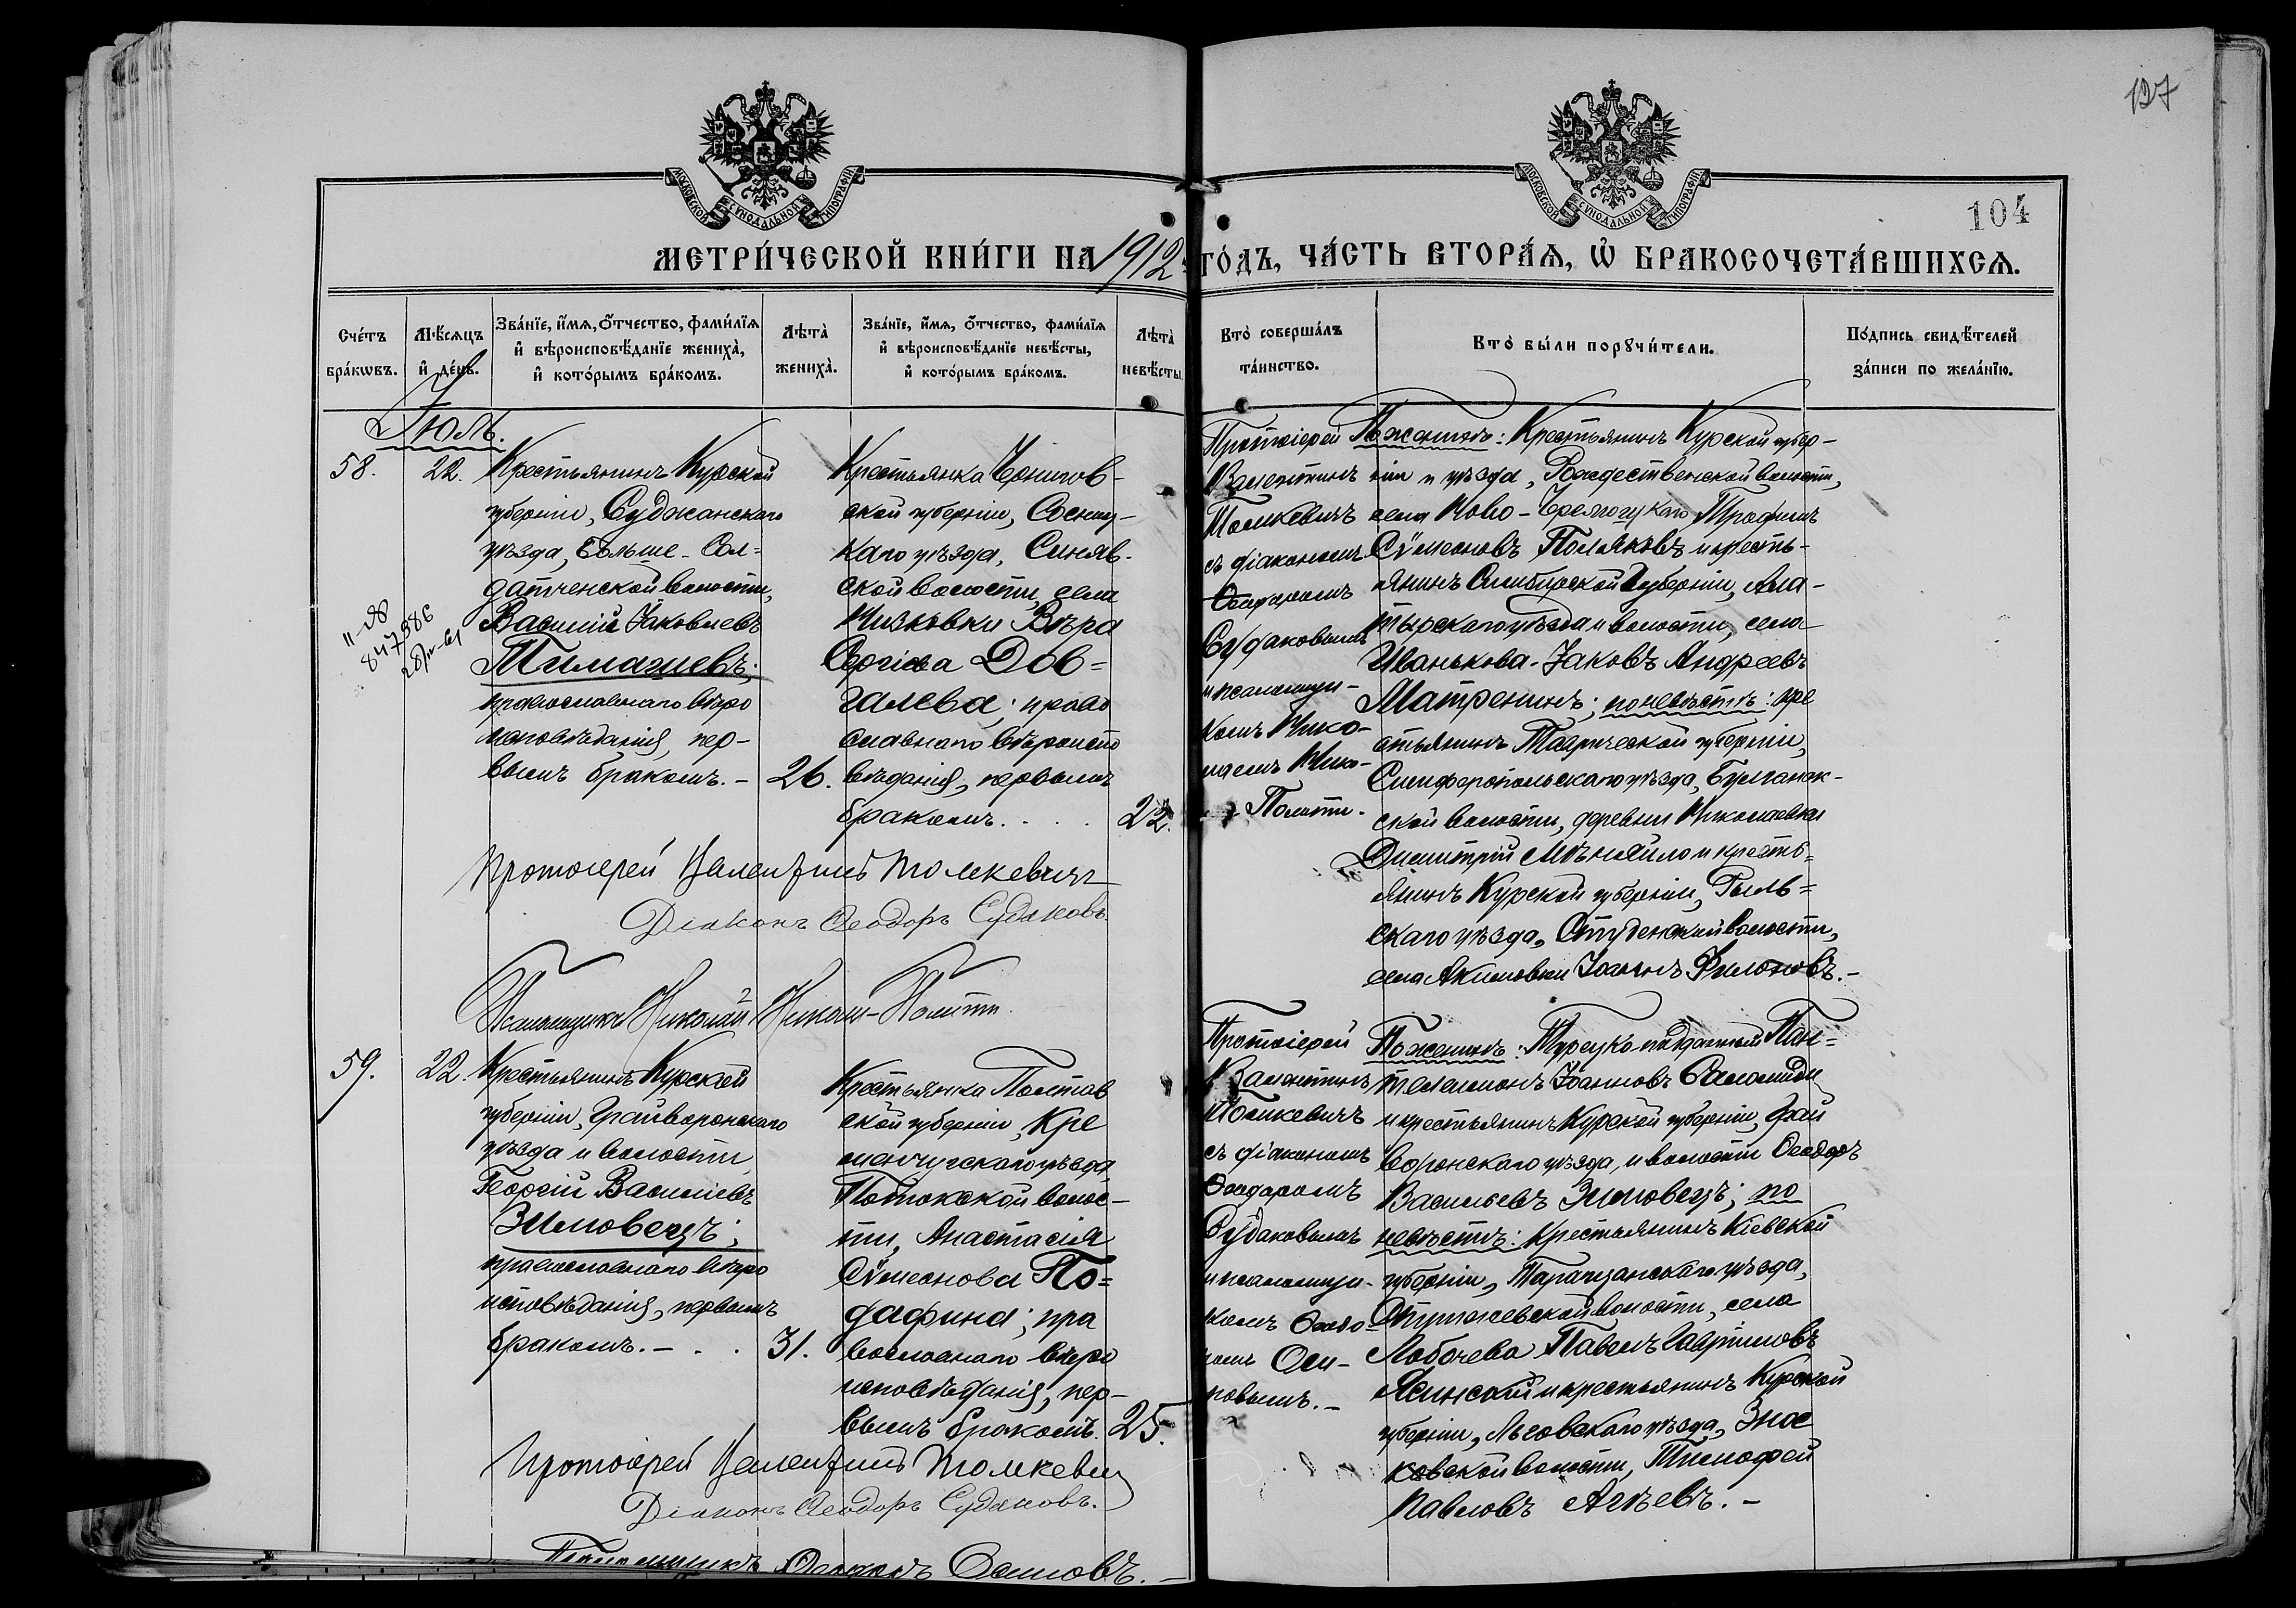 127
104
МОСКОВСКОЙ СѴНОДАЛЬНОЙ ТИПОГРАФІИ
МОСКОВСКОЙ СѴНОДАЛЬНОЙ ТИПОГРАФІИ
МЕТРИ́ЧЕСКОЙ КНИ́ГИ НА 1912 ГО́ДЪ, ЧА́СТЬ ВТОРА́Ѧ, Ѡ҆ БРАКОСОЧЕТА́ВШИХСѦ.
Сче́тъ
бра́кѡвъ.
Мѣ́сѧцъ
и҆ де́нь.
Зва́нїе, и҆́мѧ, ѻ҆́тчество, фами́лїѧ
и҆ вѣроисповѣ́данїе жениха̀,
и҆ кото́рымъ бра́комъ.
Лѣта̀
жениха̀.
Зва́нїе, и҆́мѧ, ѻ҆́тчество, фами́лїѧ
и҆ вѣроисповѣ́данїе невѣ́сты,
и҆ кото́рымъ бра́комъ.
Лѣта̀
невѣ́сты.
Кто̀ соверша́лъ
та́инство.
Кто̀ бы́ли порꙋчи́тели.
По́дпись свидѣ́телей
за́писи по жела́нїю.
Іюль.
58.
22.
Крестьянинъ Курской
губерніи, Суджанскаго
уѣзда, Больше-Сол=
датченской волости,
Василій Іаковлевъ
Тимашевъ;
православнаго вѣро
исповѣданія, пер-
вымъ бракомъ. -
26.
Крестьянка Чернигов-
ской губерніи, Сосниц-
каго уѣзда, Синяв-
ской волости, села
Низковки Вѣра
Сергіева Дов=
галева; право
славнаго вѣроиспо
вѣданія, первымъ
бракомъ. . . .
22.
Протоіерей
Валентинъ
Томкевичъ
съ діакономъ
Ѳеодоромъ
Судаковымъ
и псаломщи-
комъ Нико-
лаемъ Нико-
Политти.
По женихѣ: Крестьянинъ Курской губер-
ніи и уѣзда, Рождественской волости,
села Ново-Черемошнаго Трофимъ
Сѵмеоновъ Поляковъ и кресть-
янинъ Симбирской губерніи, Ала-
тырскаго уѣзда и волости, села
Иванькова Іаковъ Андреевъ
Матренинъ; по невѣстѣ: кре
стьянинъ Таврической губерніи,
Симферопольскаго уѣзда, Булганак-
ской волости, деревни Николаевки
Димитрій Мѣняйло и кресть=
янинъ Курской губерніи, Рыль=
скаго уѣзда, Студенской волости,
села Акимовки Іоаннъ Филоновъ. -
Протоіерей Валентинъ Томкевичъ
Діаконъ Ѳеодоръ Судаковъ.
Псаломщикъ Николай Николи-Политти.
59.
22.
Крестьянинъ Курской
губерніи, Грайворонскаго
уѣзда и волости
Георгій Василіевъ
Зимовецъ;
православнаго вѣро
исповѣданія, первымъ
бракомъ. - . .
31.
Крестьянка Полтав
ской губерніи, Кре
менчугскаго уѣзда,
Потокской волос-
ти, Анастасія
Сѵмеонова По=
дафина; пра
вославнаго вѣро
исповѣданія, пер-
вымъ бракомъ.
25.
Протоіерей
Валентинъ
Томкевичъ
съ діакономъ
Ѳеодоромъ
Судаковымъ
и псаломщи-
комъ Ѳеодо-
ромъ Оси-
повымъ. -
По женихѣ: Турецко-подданный Пан=
телеимонъ Іоанновъ Саломиди
и крестьянинъ Курской губерніи, Грай
воронскаго уѣзда, и волости Ѳеодоръ
Васильевъ Зимовецъ; по
невѣстѣ: Крестьянинъ Кіевской
губерніи, Таращанскаго уѣзда,
волости, села
Лобачева Павелъ Гавріиловъ
Ясинскій и крестьянинъ Курской
губерніи, Льговскаго уѣзда,
волости, Тимофей
Павловъ Агѣевъ. -
Протоіерей Валентинъ Томкевичъ
Діаконъ Ѳеодоръ Судаковъ.
Псаломщикъ Ѳеодоръ Осиповъ. -